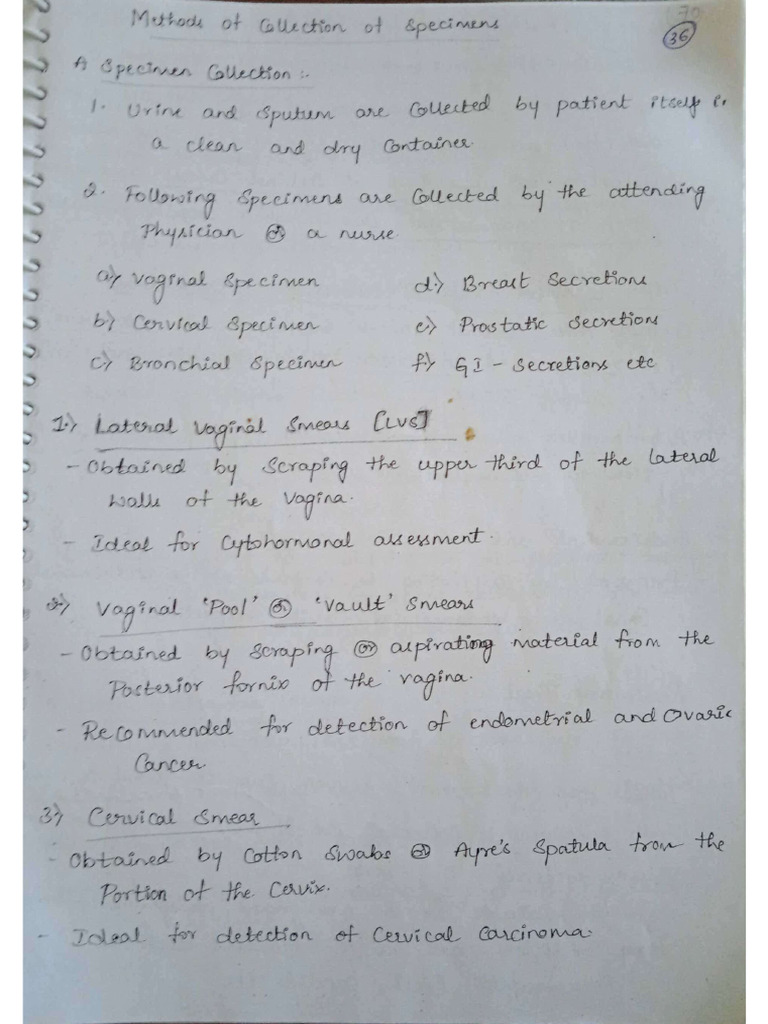 Methods of Collection of Specimens
36
A Specimen Collection :-
1. Urine and Sputum are Collected by patient itself in
a clean and dry Container.
2. Following Specimens are Collected by the attending
Physician or a nurse.
a) Vaginal Specimen
b) Cervical Specimen
c) Bronchial Specimen
d) Breast Secretions
e) Prostatic Secretions
f) GI - Secretions etc
1.) Lateral Vaginal Smears [LVS]
- Obtained by Scraping the upper third of the lateral
walls of the Vagina.
- Ideal for Cytohormonal assessment.
2) Vaginal 'Pool' or 'Vault' Smears
- Obtained by Scraping or aspirating material from the
Posterior fornix of the vagina.
- Recommended for detection of endometrial and Ovaric
Cancer.
3) Cervical Smear
- Obtained by Cotton Swabs or Ayre's Spatula from the
Portion of the Cervix.
- Ideal for detection of Cervical Carcinoma.